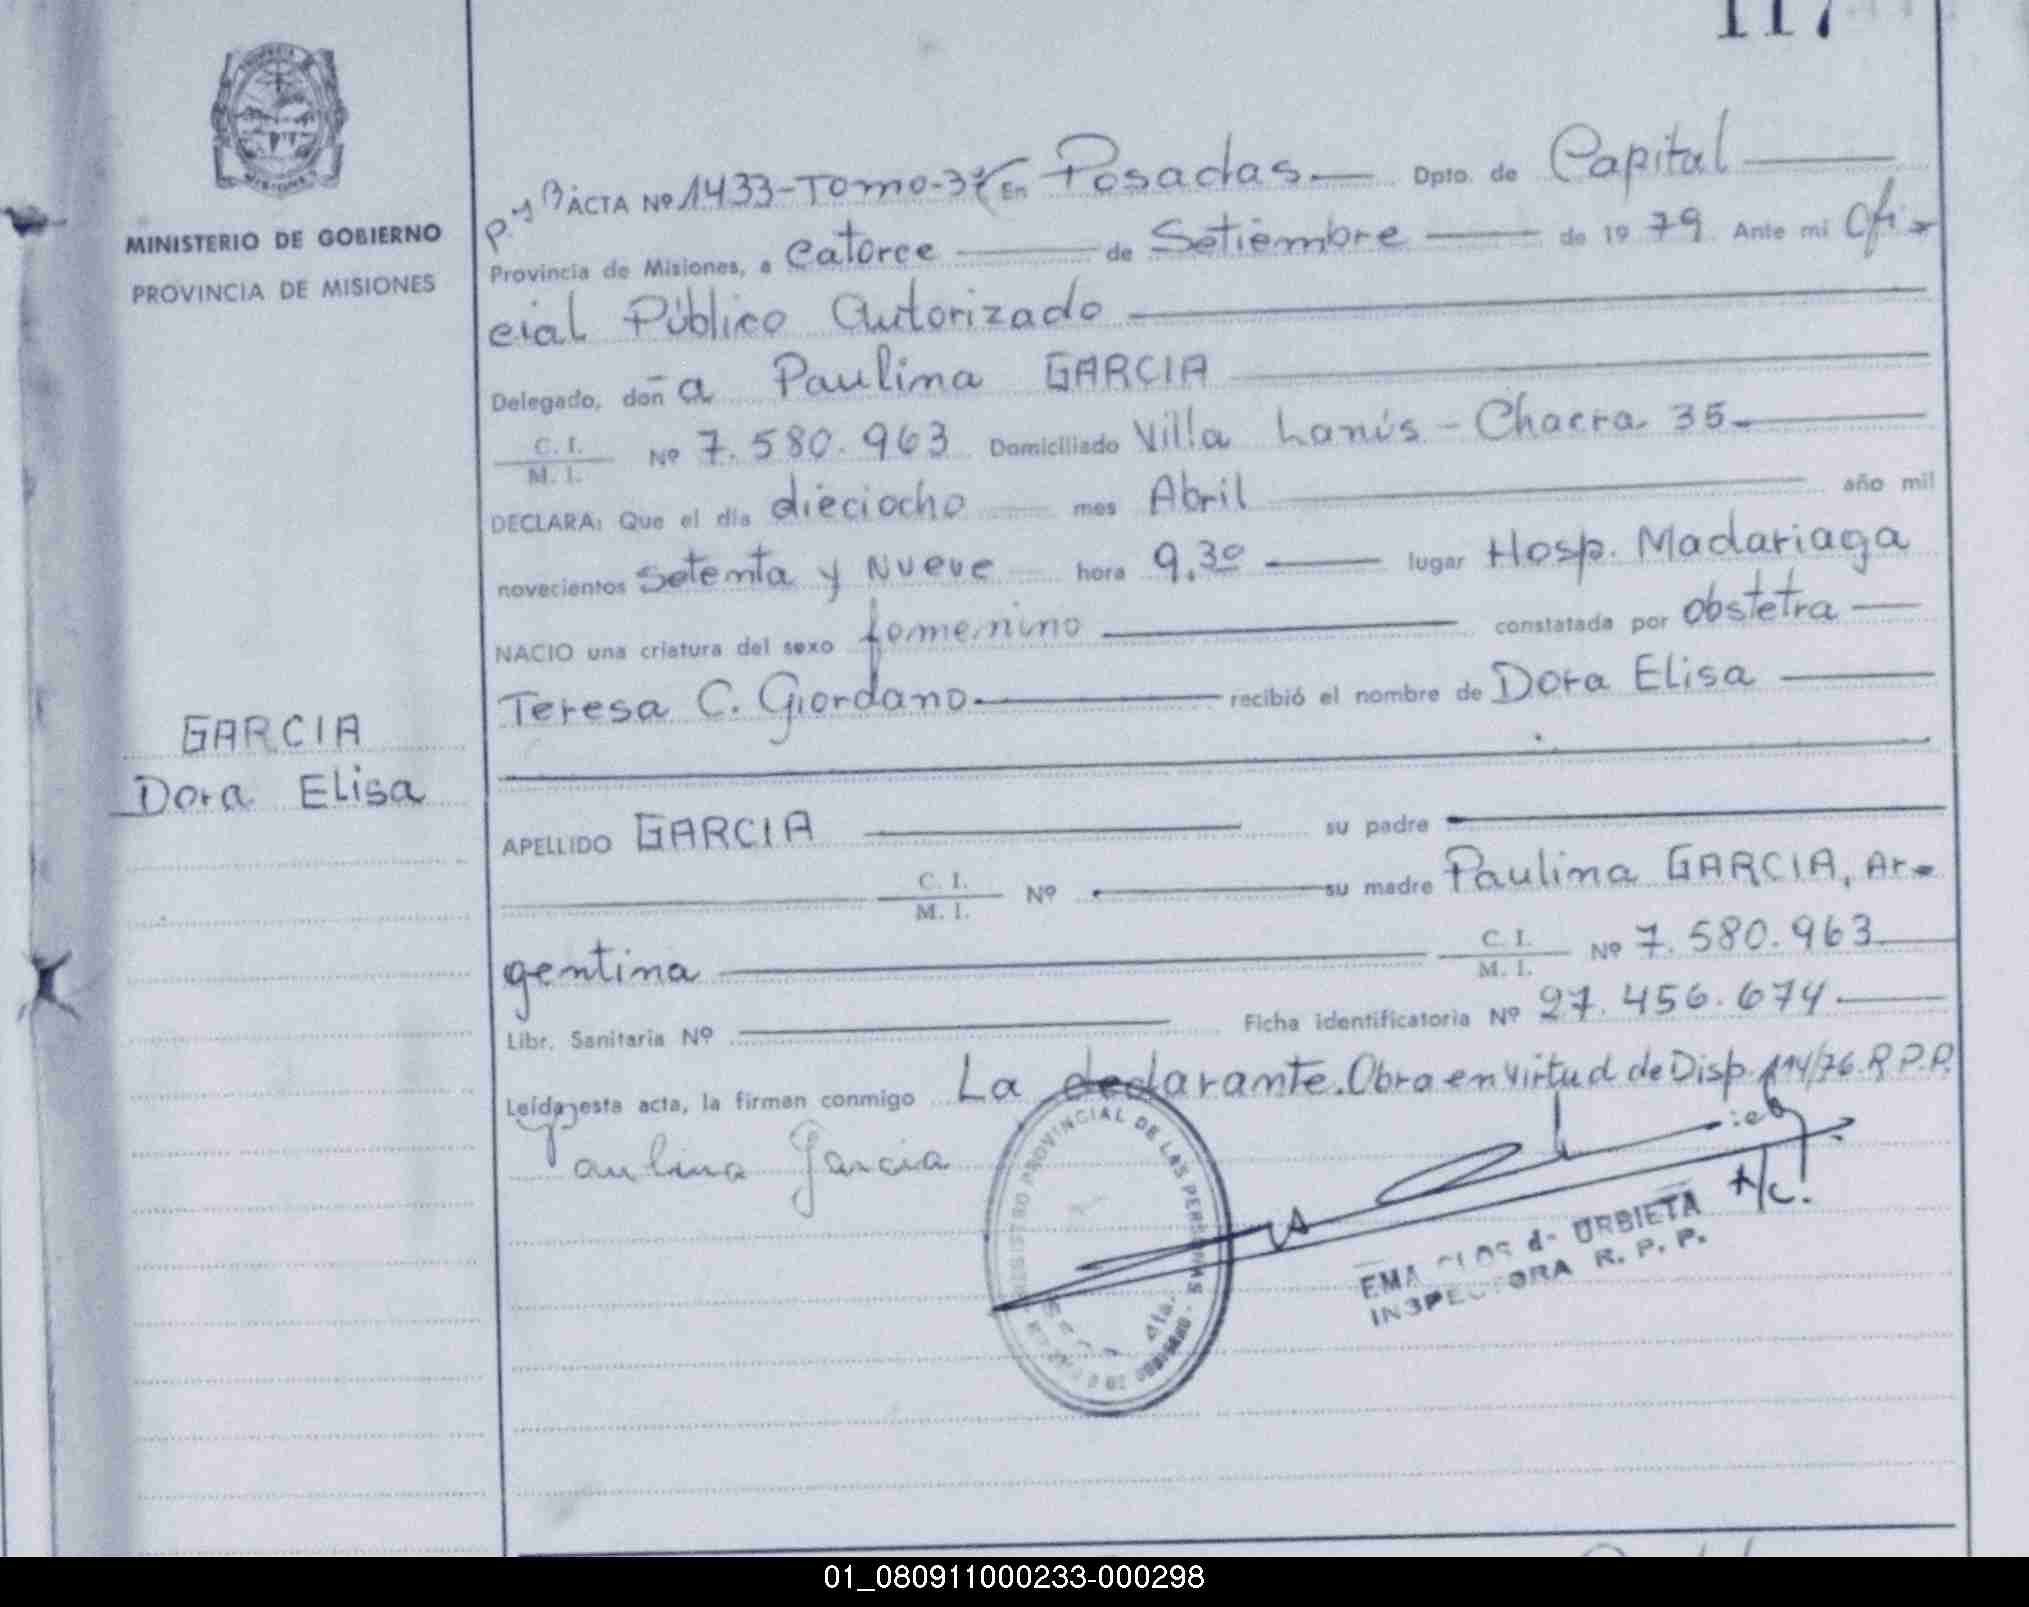 117
MINISTERIO DE GOBIERNO
PROVINCIA DE MISIONES
GARCIA
Dora Elisa
ACTA Nº 1433-Tomo-3º En Posadas Dpto. de Capital
Provincia de Misiones, a Catorce de Setiembre de 1979 Ante mi Ofi-
cial Público Autorizado
Delegado, doña Paulina GARCIA
C. I.
M. I. Nº 7.580.963 Domiciliado Villa Lanús - Chacra 35
DECLARA: Que el día dieciocho mes Abril año mil
novecientos Setenta y Nueve hora 9.30 lugar Hosp. Madariaga
NACIO una criatura del sexo femenino constatada por obstetra
Teresa C. Giordano recibió el nombre de Dora Elisa
APELLIDO GARCIA su padre
C. I.
M. I. Nº su madre Paulina GARCIA, Ar-
gentina C. I.
M. I. Nº 7.580.963
Libr. Sanitaria Nº Ficha identificatoria Nº 27.456.674
Leída esta acta, la firman conmigo La declarante. Obra en virtud de Disp. 114/76. R.P.P.
Paulina Garcia
REGISTRO PROVINCIAL DE LAS PERSONAS
A/C.
URBIETA
INSPECTORA R. P. P.
01_080911000233-000298